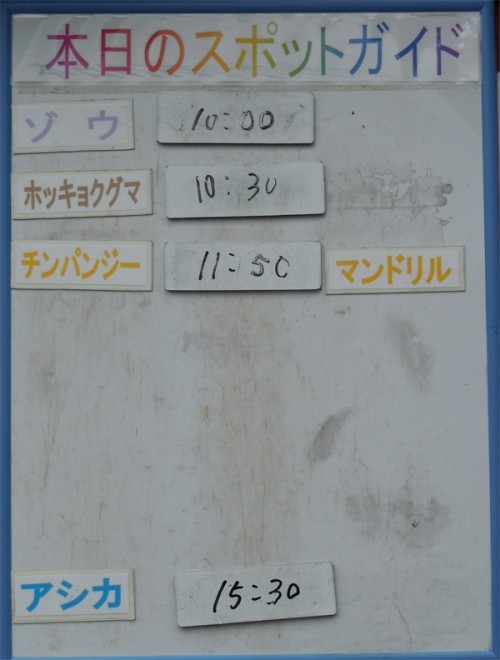 本日のスポットガイド
ゾウ 10:00
ホッキョクグマ 10:30
チンパンジー 11:50 マンドリル
アシカ 15:30